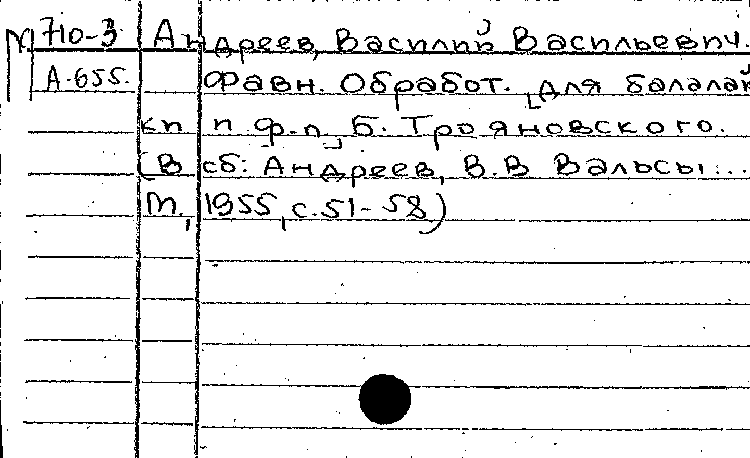 М 710-3 Андреев, Василий Васильевич.
А-655. Фавн. Обработ. [для балалай
ки и ф.п., Б. Трояновского.
(В сб: Андреев, В.В Вальсы...
М., 1955, с. 51-58)